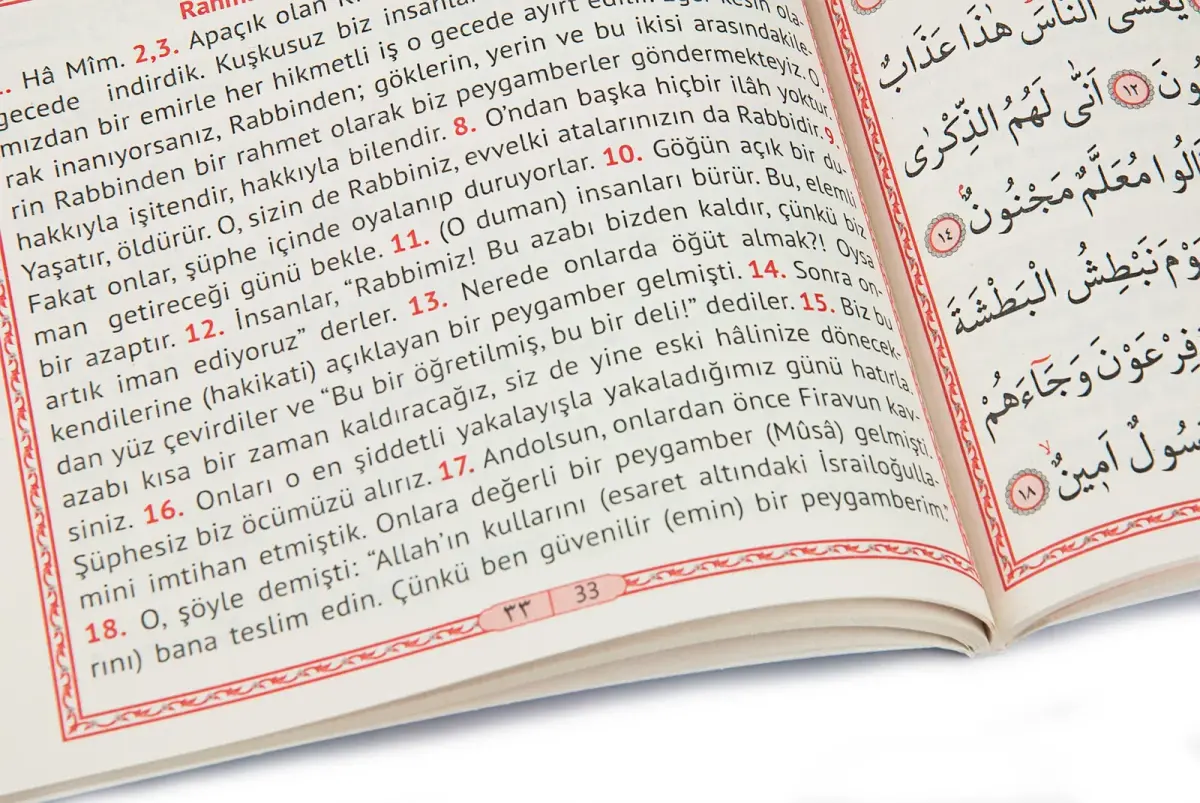 Hâ Mîm. 2,3. Apaçık olan
gecede indirdik. Kuşkusuz biz
mızdan bir emirle her hikmetli iş o gecede ayırt kesin ola-
rak inanıyorsanız, Rabbinden; göklerin, yerin ve bu ikisi arasındakile-
rin Rabbinden bir rahmet olarak biz peygamberler göndermekteyiz. O,
hakkıyla işitendir, hakkıyla bilendir. 8. O’ndan başka hiçbir ilâh yoktur.
Yaşatır, öldürür. O, sizin de Rabbiniz, evvelki atalarınızın da Rabbidir. 9.
Fakat onlar, şüphe içinde oyalanıp duruyorlar. 10. Göğün açık bir du-
man getireceği günü bekle. 11. (O duman) insanları bürür. Bu, elemli
bir azaptır. 12. İnsanlar, “Rabbimiz! Bu azabı bizden kaldır, çünkü biz
artık iman ediyoruz” derler. 13. Nerede onlarda öğüt almak?! Oysa
kendilerine (hakikati) açıklayan bir peygamber gelmişti. 14. Sonra on-
dan yüz çevirdiler ve “Bu bir öğretilmiş, bu bir deli!” dediler. 15. Biz bu
azabı kısa bir zaman kaldıracağız, siz de yine eski hâlinize dönecek-
siniz. 16. Onları o en şiddetli yakalayışla yakaladığımız günü hatırla.
Şüphesiz biz öcümüzü alırız. 17. Andolsun, onlardan önce Firavun kav-
mini imtihan etmiştik. Onlara değerli bir peygamber (Mûsâ) gelmişti.
18. O, şöyle demişti: “Allah’ın kullarını (esaret altındaki İsrailoğulla-
rını) bana teslim edin. Çünkü ben güvenilir (emin) bir peygamberim.”
٣٣ | 33
النَّاسَ هٰذَا عَذَابٌ
١٢ اَنّٰى لَهُمُ الذِّكْرٰى
مُعَلَّمٌ مَجْنُونٌ ١٤
نَبْطِشُ الْبَطْشَةَ
فِرْعَوْنَ وَجَٓاءَهُمْ
اَمٖينٌ ١٨